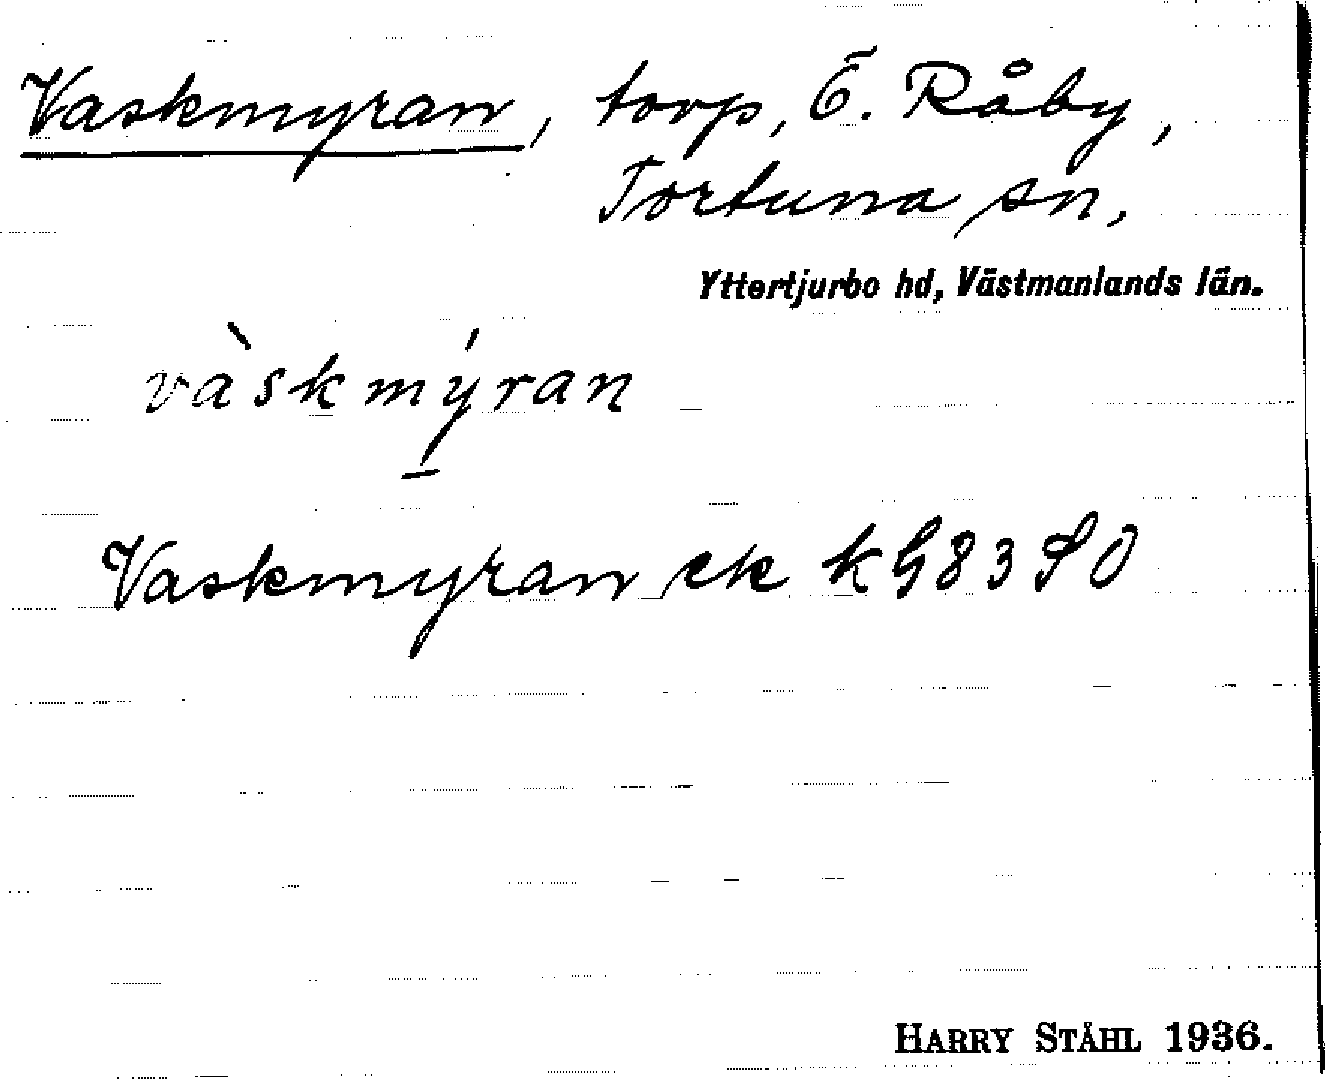 Vaskmyran, torp, Ö. Råby,
Tortuna sn,
Yttertjurbo hd, Västmanlands län.
vàskmýran
Vaskmyran ek k G83 SO
HARRY STÅHL 1936.